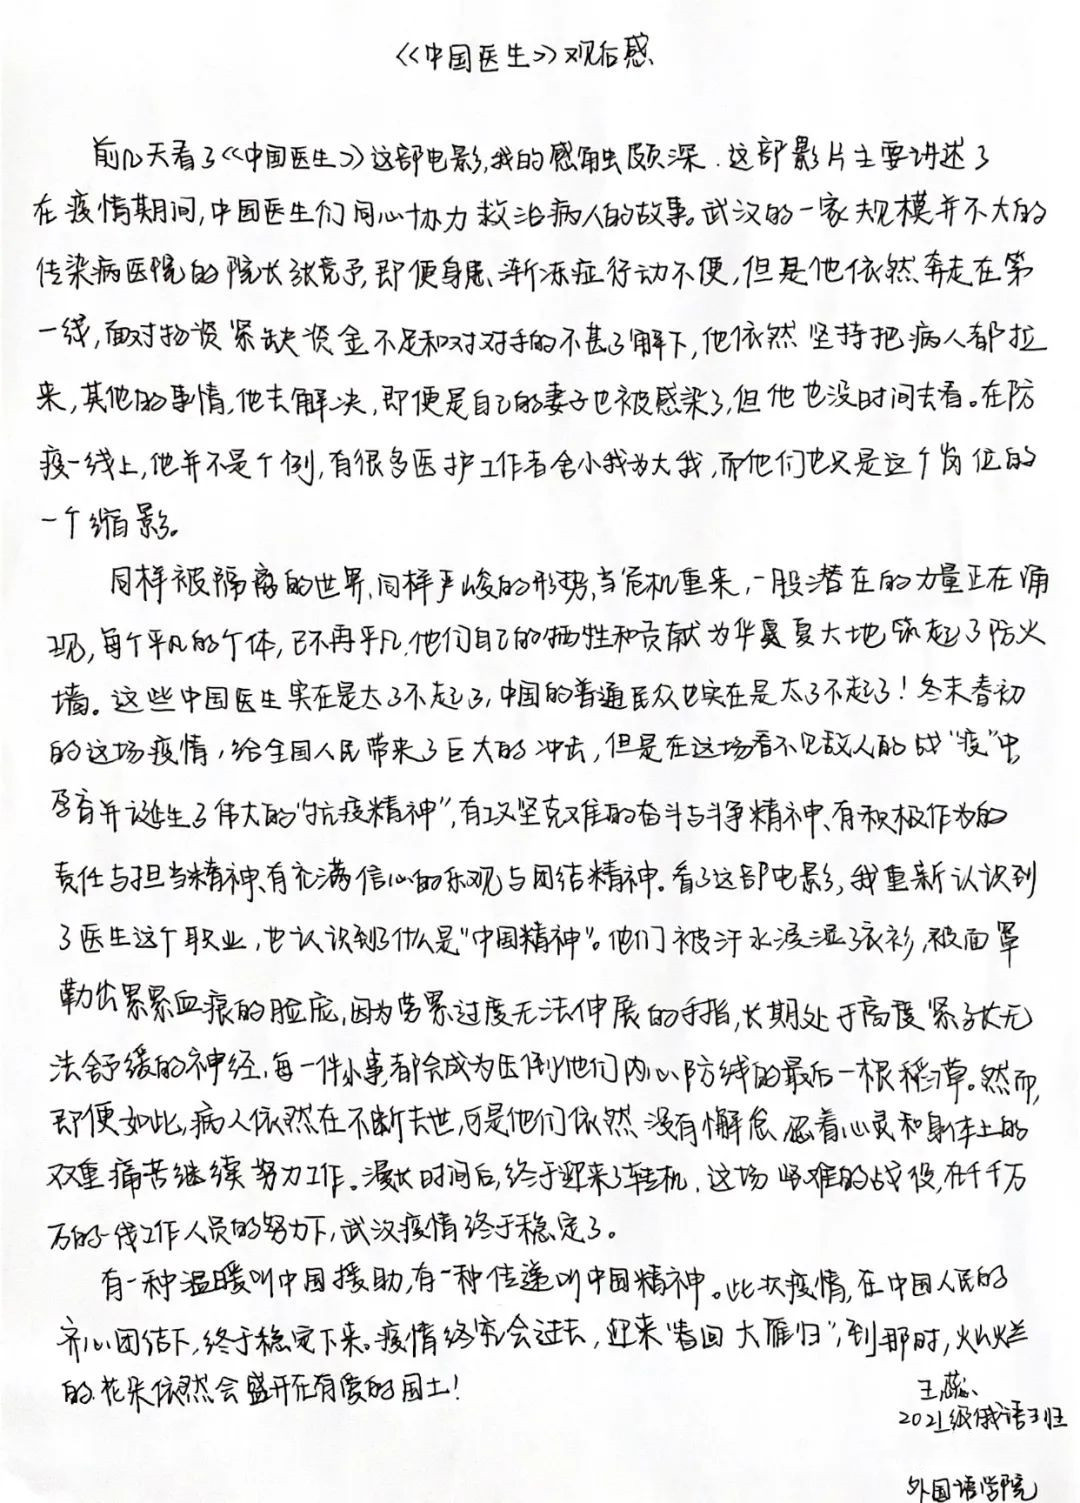 《中国医生》观后感
前几天看了《中国医生》这部电影,我的感触颇深.这部影片主要讲述了
在疫情期间,中国医生们同心协力救治病人的故事。武汉的一家规模并不大的
传染病医院的院长张竞予,即便身患渐冻症行动不便,但是他依然奔走在第
一线,面对物资紧缺资金不足和对对手的不甚了解下,他依然坚持把病人都拉
来,其他的事情,他去解决,即便是自己的妻子也被感染了,但他也没时间去看。在防
疫一线上,他并不是个例,有很多医护工作者舍小我为大我,而他们也只是这个岗位的
一个缩影。
同样被隔离的世界,同样严峻的形势,当危机重来,一股潜在的力量正在涌
现,每个平凡的个体,已不再平凡.他们自己的牺牲和贡献为华夏大地筑起了防火
墙。这些中国医生实在是太了不起了,中国的普通民众也实在是太了不起了!冬末春初
的这场疫情,给全国人民带来了巨大的冲击,但是在这场看不见敌人的战“疫”中,
孕育并诞生了伟大的“抗疫精神”,有攻坚克难的奋斗与斗争精神、有积极作为的
责任与担当精神、有充满信心的乐观与团结精神。看了这部电影,我重新认识到
了医生这个职业,也认识到了什么是“中国精神”。他们被汗水浸湿了衣衫,被面罩
勒出累累血痕的脸庞,因为劳累过度无法伸展的手指,长期处于高度紧张无
法舒缓的神经,每一件小事都会成为压倒他们内心防线的最后一根稻草。然而,
即便如此,病人依然在不断去世,可是他们依然没有懈怠,忍着心灵和身体上的
双重痛苦继续努力工作。漫长时间后,终于迎来了转机,这场艰难的战役,在千千万
万的一线工作人员的努力下,武汉疫情终于稳定了。
有一种温暖叫中国援助,有一种传递叫中国精神。此次疫情,在中国人民的
齐心团结下,终于稳定下来。疫情终究会过去,迎来“春回大雁归”,到那时,灿烂
的花朵依然会盛开在有爱的国土!
王蕊
2021级俄语3班
外国语学院